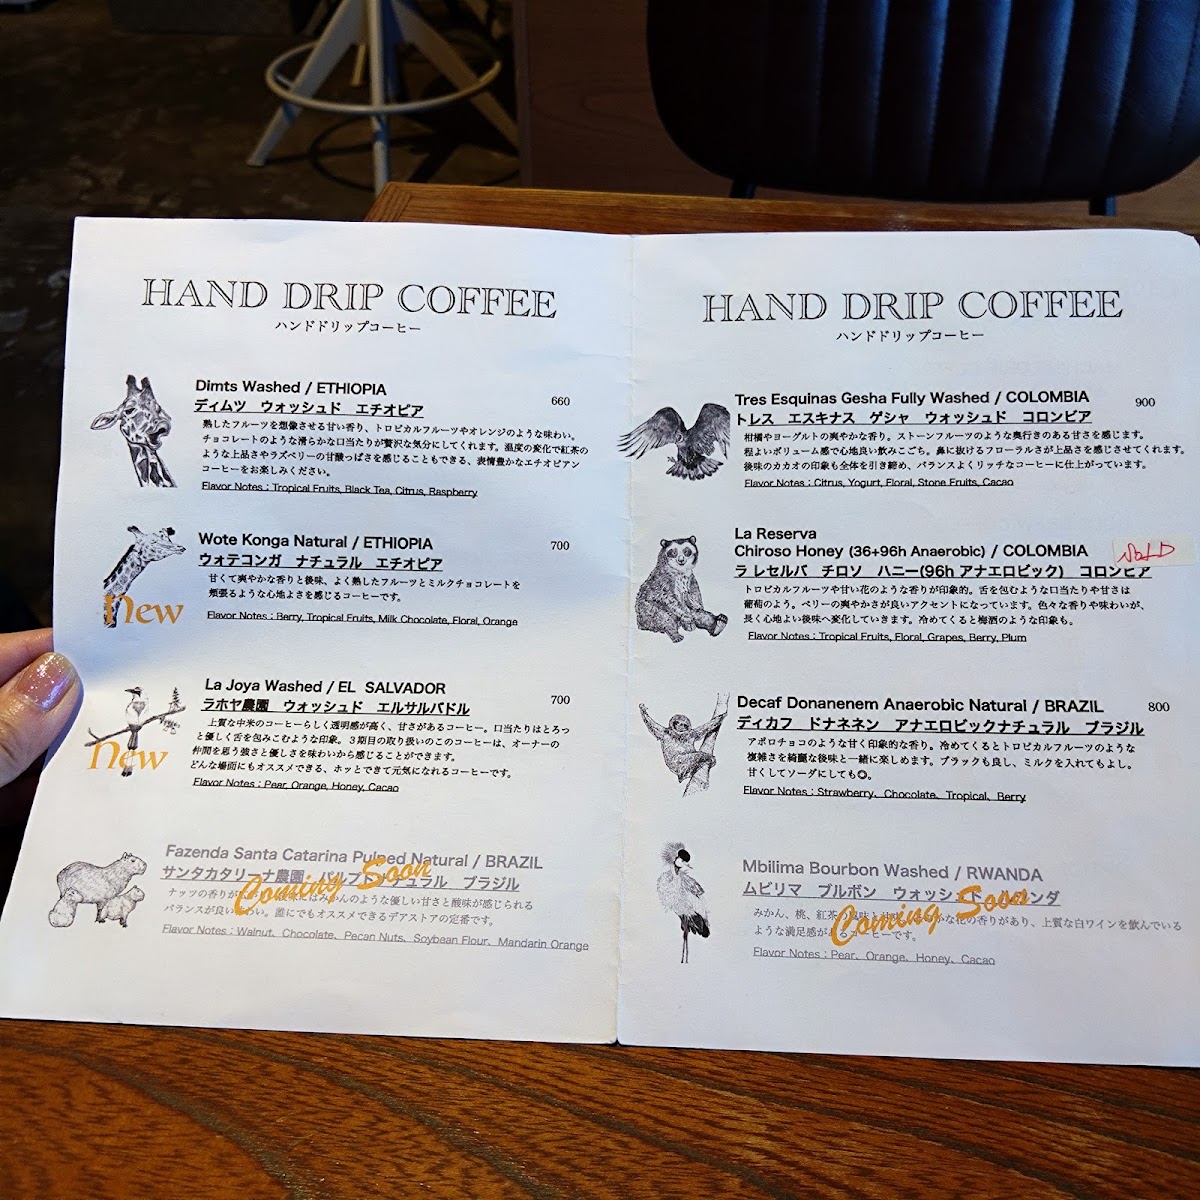 HAND DRIP COFFEE
ハンドドリップコーヒー
Dimts Washed / ETHIOPIA
660
ディムツ ウォッシュド エチオピア
熟したフルーツを想像させる甘い香り、トロピカルフルーツやオレンジのような味わい。
チョコレートのような滑らかな口当たりが贅沢な気分にしてくれます。温度の変化で紅茶の
ような上品さやラズベリーの甘酸っぱさを感じることもできる、表情豊かなエチオピアン
コーヒーをお楽しみください。
Flavor Notes : Tropical Fruits, Black Tea, Citrus, Raspberry
Wote Konga Natural / ETHIOPIA
700
ウォテコンガ ナチュラル エチオピア
甘くて爽やかな香りと後味、よく熟したフルーツとミルクチョコレートを
頬張るような心地よさを感じるコーヒーです。
New
Flavor Notes : Berry, Tropical Fruits, Milk Chocolate, Floral, Orange
La Joya Washed / EL SALVADOR
700
ラホヤ農園 ウォッシュド エルサルバドル
上質な中米のコーヒーらしく透明感が高く、甘さがあるコーヒー。口当たりはとろっ
と優しく舌を包みこむような印象。3期目の取り扱いのこのコーヒーは、オーナーの
仲間を思う強さと優しさを味わいから感じることができます。
どんな場面にもオススメできる、ホッとできて元気になれるコーヒーです。
New
Flavor Notes : Pear, Orange, Honey, Cacao
Fazenda Santa Catarina Pulped Natural / BRAZIL
サンタカタリーナ農園 パルプトナチュラル ブラジル
Coming Soon
ナッツの香りが 酸味にはみかんのような優しい甘さと酸味が感じられる
バランスが良い 誰にでもオススメできるデアストアの定番です。
Flavor Notes : Walnut、Chocolate、Pecan Nuts、Soybean Flour、Mandarin Orange
HAND DRIP COFFEE
ハンドドリップコーヒー
Tres Esquinas Gesha Fully Washed / COLOMBIA
900
トレス エスキナス ゲシャ ウォッシュド コロンビア
柑橘やヨーグルトの爽やかな香り。ストーンフルーツのような奥行きのある甘さを感じます。
程よいボリューム感で心地良い飲みごこち。鼻に抜けるフローラルさが上品さを感じさせてくれます。
後味のカカオの印象も全体を引き締め、バランスよくリッチなコーヒーに仕上がっています。
Flavor Notes : Citrus, Yogurt, Floral, Stone Fruits, Cacao
La Reserva
Chiroso Honey (36+96h Anaerobic) / COLOMBIA
SOLD
ラ レセルバ チロソ ハニー(96h アナエロビック) コロンビア
トロピカルフルーツや甘い花のような香りが印象的。舌を包むような口当たりや甘さは
葡萄のよう。ベリーの爽やかさが良いアクセントになっています。色々な香りや味わいが、
長く心地よい後味へ変化していきます。冷めてくると梅酒のような印象も。
Flavor Notes : Tropical Fruits, Floral, Grapes, Berry, Plum
Decaf Donanenem Anaerobic Natural / BRAZIL
800
ディカフ ドナネネン アナエロビックナチュラル ブラジル
アポロチョコのような甘く印象的な香り。冷めてくるとトロピカルフルーツのような
複雑さを綺麗な後味と一緒に楽しめます。ブラックも良し、ミルクを入れてもよし。
甘くしてソーダにしても◎。
Flavor Notes : Strawberry、Chocolate、Tropical、Berry
Mbilima Bourbon Washed / RWANDA
ムビリマ ブルボン ウォッシュド ルワンダ
Coming Soon
みかん、桃、紅茶の風味と 花の香りがあり、上質な白ワインを飲んでいる
ような満足感があるコーヒーです。
Flavor Notes : Pear、Orange、Honey、Cacao